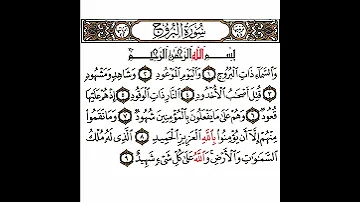 سُورَةُ الْبُرُوجِ
بِسْمِ اللَّهِ الرَّحْمَٰنِ الرَّحِيمِ
وَالسَّمَاءِ ذَاتِ الْبُرُوجِ ١ وَالْيَوْمِ الْمَوْعُودِ ٢ وَشَاهِدٍ وَمَشْهُودٍ
٣ قُتِلَ أَصْحَابُ الْأُخْدُودِ ٤ النَّارِ ذَاتِ الْوَقُودِ ٥ إِذْ هُمْ عَلَيْهَا
قُعُودٌ ٦ وَهُمْ عَلَىٰ مَا يَفْعَلُونَ بِالْمُؤْمِنِينَ شُهُودٌ ٧ وَمَا نَقَمُوا
مِنْهُمْ إِلَّا أَنْ يُؤْمِنُوا بِاللَّهِ الْعَزِيزِ الْحَمِيدِ ٨ الَّذِي لَهُ مُلْكُ
السَّمَاوَاتِ وَالْأَرْضِ وَاللَّهُ عَلَىٰ كُلِّ شَيْءٍ شَهِيدٌ ٩